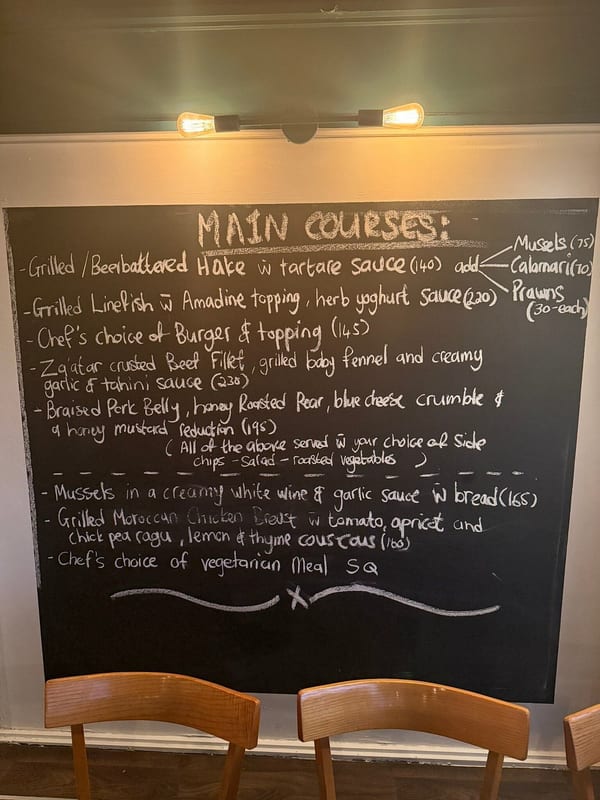 MAIN COURSES:
- Grilled / Beerbattered Hake w̄ tartare sauce (140) add
Mussels (75)
Calamari (70)
Prawns
(30-each)
- Grilled Linefish w̄ Amadine topping, herb yoghurt sauce (220)
- Chef's choice of Burger & topping (145)
- Za'atar crusted Beef Fillet, grilled baby fennel and creamy
garlic & tahini sauce (230)
- Braised Pork Belly, honey Roasted Pear, blue cheese crumble &
a honey mustard reduction (195)
( All of the above served w̄ your choice of side
chips - salad - roasted vegetables )
- Mussels in a creamy white wine & garlic sauce w̄ bread (165)
- Grilled Moroccan Chicken Breast w̄ tomato, apricot and
chick pea ragu, lemon & thyme couscous (160)
- Chef's choice of vegetarian Meal SQ